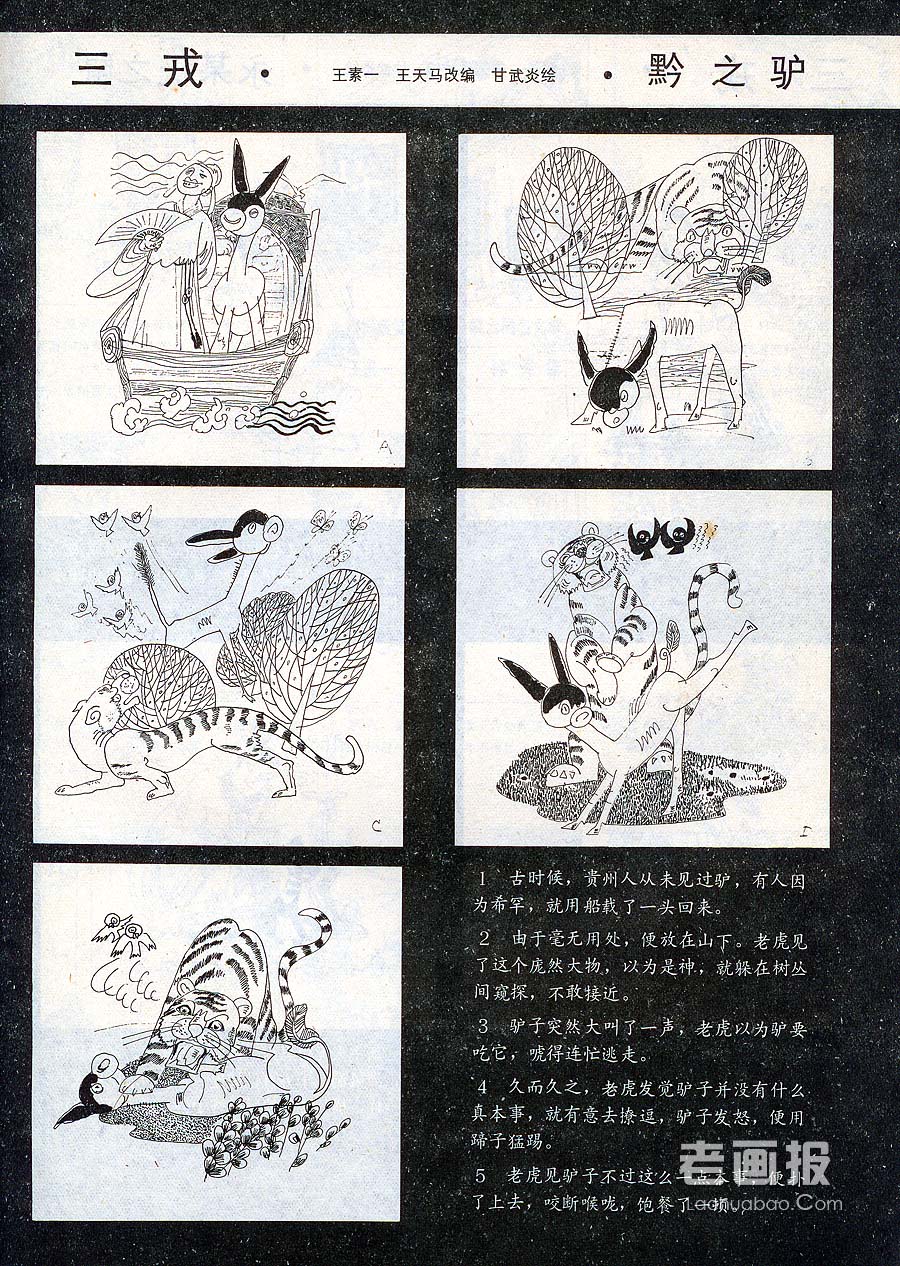 三戎 · 王素一 王天马改编 甘武炎绘 · 黔之驴
A
C
1 古时候，贵州人从未见过驴，有人因
为希罕，就用船载了一头回来。
2 由于毫无用处，便放在山下。老虎见
了这个庞然大物，以为是神，就躲在树丛
间窥探，不敢接近。
3 驴子突然大叫了一声，老虎以为驴要
吃它，唬得连忙逃走。
4 久而久之，老虎发觉驴子并没有什么
真本事，就有意去撩逗，驴子发怒，便用
蹄子猛踢。
5 老虎见驴子不过这么一点本事，便扑
了上去，咬断喉咙，饱餐了一顿。
老画报
LaohuaBao.Com